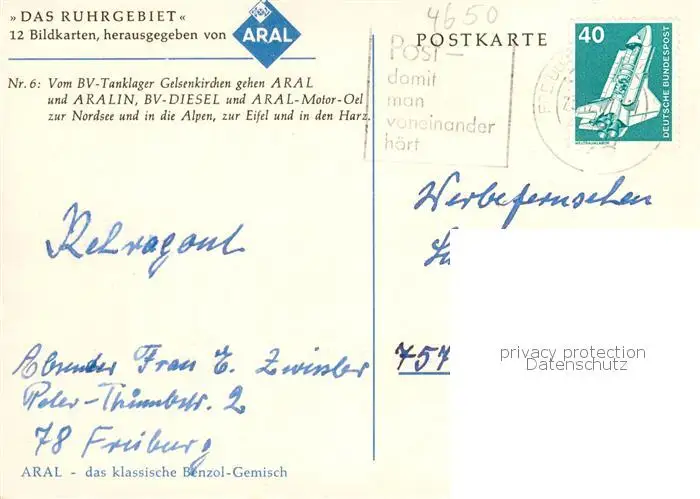 »DAS RUHRGEBIET«
12 Bildkarten, herausgegeben von
ARAL
Nr. 6: Vom BV-Tanklager Gelsenkirchen gehen ARAL
und ARALIN, BV-DIESEL und ARAL-Motor-Oel
zur Nordsee und in die Alpen, zur Eifel und in den Harz.
Rehragout
Absender Frau E. Zwissler
Peter-Thumbstr. 2
78 Freiburg
ARAL - das klassische Benzol-Gemisch
4650
POSTKARTE
Post –
damit
man
voneinander
hört
40
DEUTSCHE BUNDESPOST
WELTRAUMLABOR
Werbefernsehen
757
privacy protection
Datenschutz